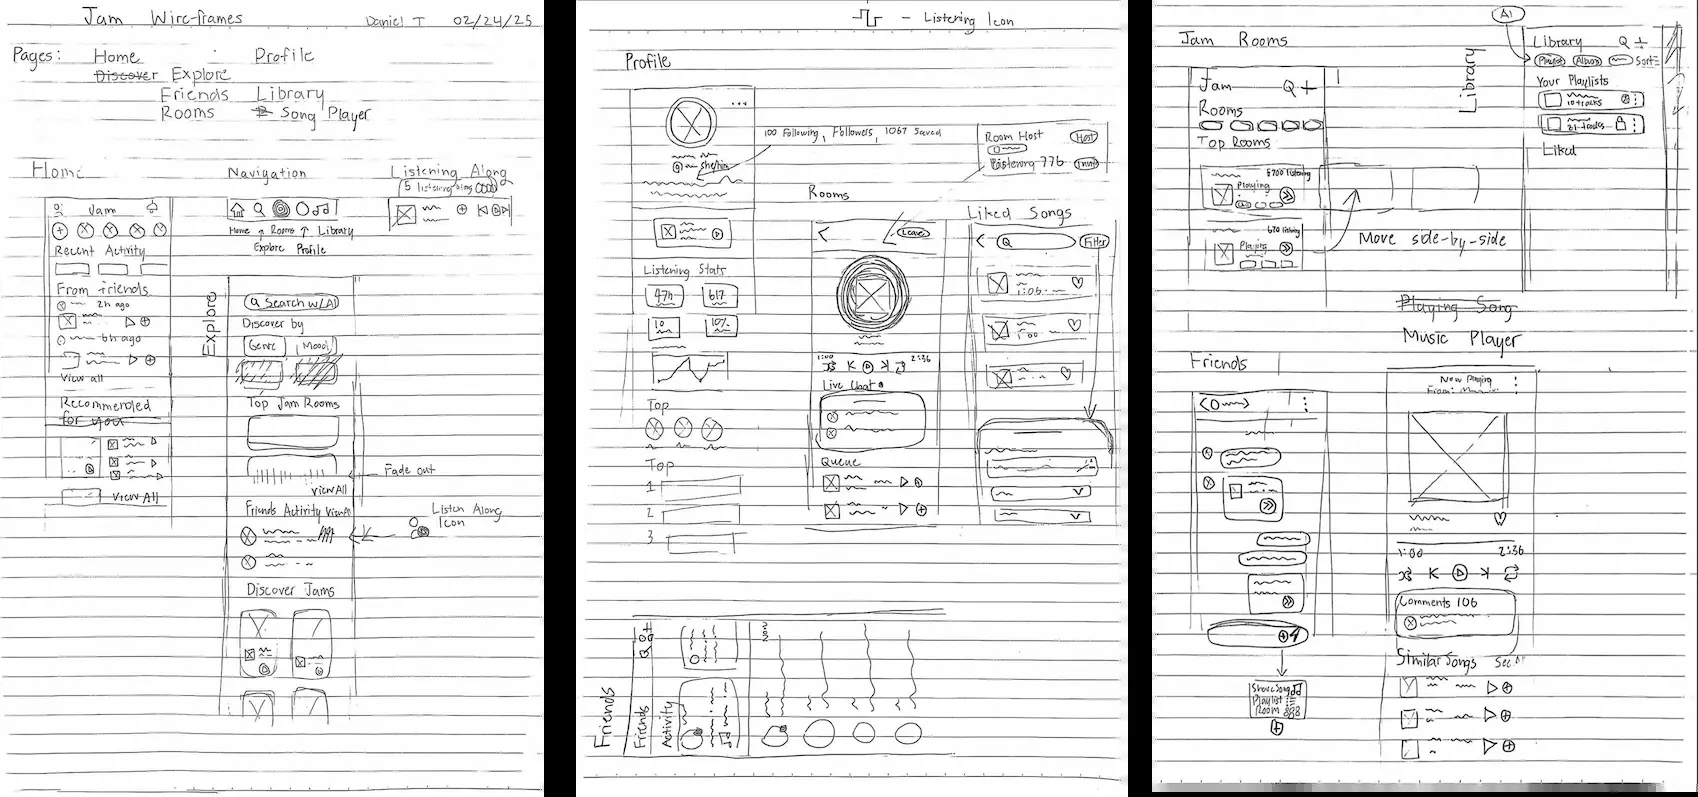 Jam Wire-frames Daniel T 02/24/25
Pages: Home Profile
Discover Explore
Friends Library
Rooms Song Player
Home
Jam
Recent Activity
From friends
2h ago
6h ago
View all
Recommended
for you
View All
Navigation
Home Rooms Library
Explore Profile
Listening Along
5 listening along
Explore
Search w/AI
Discover by
Genre Mood
Top Jam Rooms
Fade out
View All
Friends Activity View All
Listen Along
Icon
Discover Jams
- Listening Icon
Profile
she/her
100 Following, Followers, 1067 Saved
Room Host Host
Listening 776
Listening Stats
47h 617
10 10%
Top
Top
1
2
3
Rooms
Leave
1:00 2:36
Live Chat
Queue
Liked Songs
Filter
1:06
1:00
Friends
Friends
Activity
Jam Rooms
Jam
Rooms
Top Rooms
5700 listening
Playing
670 listening
Playing
Move side-by-side
Library
AI
Library
Playlist Albums Sort
Your Playlists
10 tracks
21 tracks
Liked
Playing Song
Music Player
Now Playing
From:
1:00 2:36
Comments 106
Similar Songs
Friends
Share Song
Playlist
Room